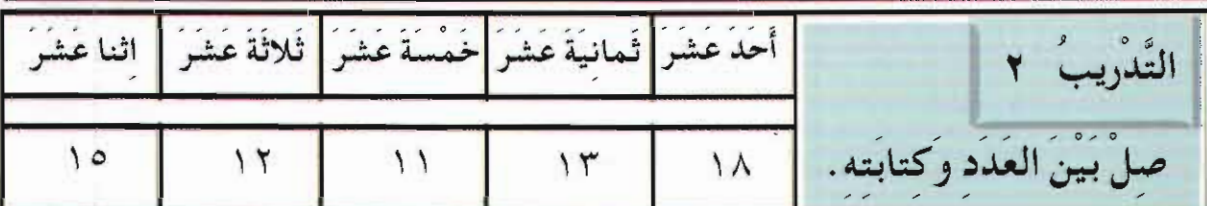 التَّدْرِيبُ ٢
صِلْ بَيْنَ العَدَدِ وَكِتابَتِهِ.
أَحَدَ عَشَرَ ثَمانِيَةَ عَشَرَ خَمْسَةَ عَشَرَ ثَلاثَةَ عَشَرَ اِثنا عَشَرَ
١٨ ١٣ ١١ ١٢ ١٥